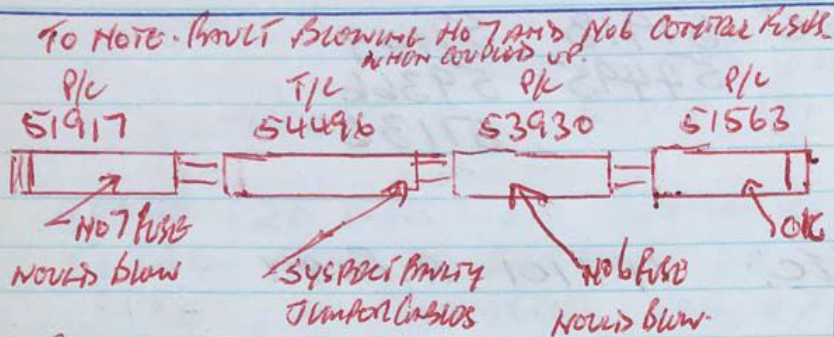 TO NOTE - FAULT BLOWING NO 7 AND NO6 CONTROL FUSES
WHEN COUPLED UP.
P/C T/C P/C P/C
51917 54496 53930 51563
NO7 FUSE
WOULD BLOW
SUSPECT FAULTY
JUMPER CABLES
NO6 FUSE
WOULD BLOW.
OK